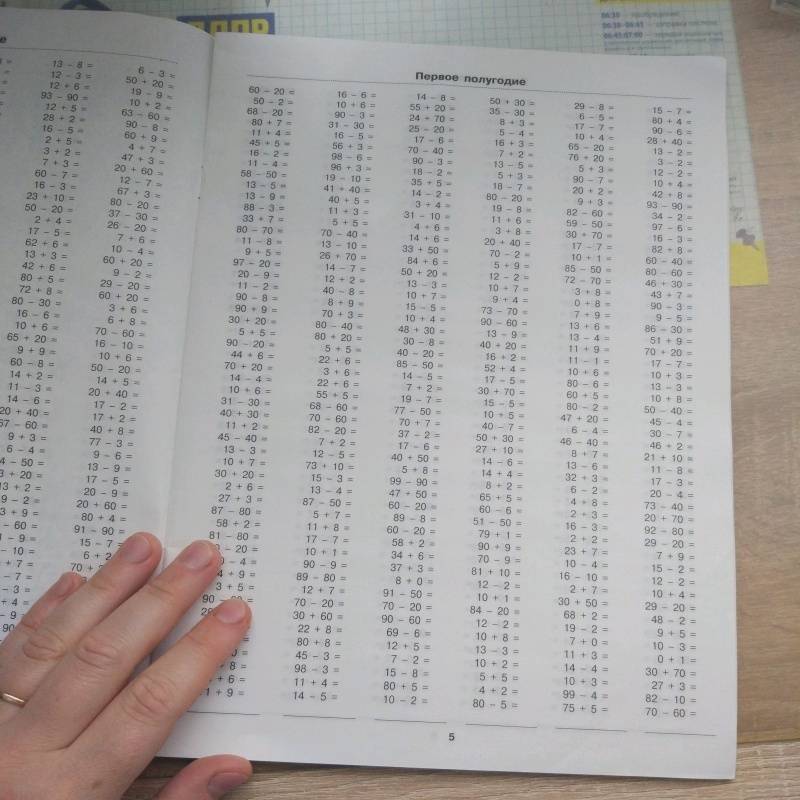 Первое полугодие
13 − 8 =
12 − 3 =
12 + 6 =
93 − 90 =
12 + 5 =
28 + 2 =
16 − 5 =
2 + 5 =
3 + 2 =
7 + 3 =
60 − 7 =
16 − 3 =
23 + 10 =
50 − 20 =
2 + 4 =
17 − 5 =
62 + 6 =
13 + 3 =
42 + 6 =
80 + 5 =
72 + 8 =
80 − 30 =
16 − 6 =
10 + 6 =
65 + 20 =
9 + 9 =
60 − 8 =
14 + 2 =
11 − 3 =
14 − 6 =
20 + 40 =
67 − 60 =
9 + 3 =
6 − 4 =
6 − 3 =
50 + 20 =
19 − 9 =
10 + 2 =
63 − 60 =
90 − 8 =
60 + 9 =
4 + 7 =
47 + 3 =
20 + 60 =
12 − 7 =
67 + 3 =
80 − 20 =
37 − 30 =
26 − 20 =
7 + 6 =
10 − 4 =
60 + 20 =
9 − 2 =
29 − 20 =
60 + 20 =
3 + 6 =
6 + 8 =
70 − 60 =
16 − 10 =
10 + 6 =
50 − 20 =
14 + 5 =
20 + 40 =
17 − 2 =
17 + 2 =
40 + 8 =
77 − 3 =
9 − 6 =
13 − 9 =
17 − 5 =
20 − 9 =
20 + 60 =
80 + 4 =
91 − 90 =
15 − 7 =
60 − 20 =
50 − 2 =
68 − 20 =
80 + 7 =
11 + 4 =
45 + 5 =
16 − 2 =
11 − 4 =
58 − 50 =
13 − 5 =
13 − 9 =
88 − 3 =
33 + 7 =
80 − 70 =
11 − 8 =
9 + 5 =
97 − 20 =
20 − 9 =
11 − 2 =
90 − 8 =
90 + 9 =
30 + 20 =
5 + 5 =
90 − 20 =
44 + 6 =
70 + 20 =
14 − 4 =
10 + 6 =
31 − 30 =
40 + 30 =
11 + 2 =
45 − 40 =
13 − 3 =
10 + 7 =
30 + 20 =
2 + 6 =
27 + 3 =
87 − 80 =
58 + 2 =
81 − 80 =
16 − 6 =
10 + 6 =
90 − 3 =
31 − 30 =
16 − 5 =
56 + 3 =
98 − 6 =
96 + 3 =
19 − 10 =
41 + 40 =
40 + 5 =
11 + 3 =
5 + 5 =
70 − 40 =
13 − 10 =
26 + 70 =
14 − 7 =
12 + 2 =
40 − 8 =
8 + 9 =
70 + 3 =
80 − 40 =
80 + 20 =
5 + 5 =
22 + 6 =
3 + 6 =
22 + 6 =
55 + 5 =
68 − 60 =
70 − 60 =
82 − 20 =
7 + 2 =
12 − 5 =
73 + 10 =
15 − 3 =
13 − 4 =
87 − 50 =
5 + 7 =
11 + 8 =
17 − 7 =
10 + 1 =
90 − 9 =
89 − 80 =
12 + 7 =
70 − 20 =
30 + 60 =
22 + 8 =
80 + 8 =
45 − 3 =
98 − 3 =
11 + 4 =
14 − 5 =
14 − 8 =
55 + 20 =
24 + 70 =
25 − 20 =
17 − 6 =
70 − 40 =
90 − 3 =
18 − 2 =
35 + 5 =
14 − 2 =
3 + 4 =
31 − 10 =
4 + 6 =
14 + 6 =
33 + 50 =
84 + 6 =
50 + 20 =
13 − 3 =
10 + 7 =
15 − 5 =
10 + 4 =
48 + 30 =
30 − 8 =
40 − 20 =
85 − 50 =
14 − 5 =
7 + 2 =
19 − 7 =
77 − 50 =
70 + 7 =
37 − 2 =
17 − 6 =
40 + 50 =
5 + 8 =
99 − 90 =
47 + 50 =
60 − 20 =
89 − 8 =
60 − 20 =
58 + 2 =
34 + 6 =
37 + 3 =
8 + 0 =
91 − 50 =
70 − 20 =
90 − 60 =
69 − 6 =
12 + 5 =
7 − 2 =
15 − 8 =
80 + 5 =
10 − 2 =
50 + 30 =
35 − 30 =
8 + 3 =
5 − 4 =
16 + 3 =
7 + 2 =
13 − 5 =
5 + 3 =
18 − 7 =
80 − 20 =
19 − 8 =
11 + 6 =
3 + 8 =
20 + 40 =
70 − 2 =
5 + 9 =
12 − 2 =
10 + 7 =
9 + 4 =
73 − 70 =
90 − 60 =
13 − 9 =
40 + 20 =
16 + 2 =
52 + 4 =
17 − 5 =
30 + 70 =
15 − 5 =
10 + 5 =
40 − 7 =
50 + 30 =
27 + 10 =
14 − 6 =
14 + 4 =
8 + 2 =
65 + 5 =
60 − 6 =
51 − 50 =
79 + 1 =
90 + 9 =
70 − 9 =
81 + 10 =
12 − 2 =
10 + 1 =
84 − 20 =
12 − 2 =
10 + 8 =
13 − 3 =
10 + 2 =
5 + 5 =
4 + 2 =
80 − 5 =
29 − 8 =
6 − 5 =
17 − 7 =
10 + 4 =
65 − 20 =
76 + 20 =
5 + 3 =
90 − 7 =
20 + 2 =
9 + 3 =
82 − 60 =
59 − 50 =
30 + 70 =
17 − 7 =
10 + 1 =
85 − 50 =
72 − 70 =
3 + 8 =
0 + 8 =
7 + 9 =
13 + 6 =
13 − 4 =
11 + 9 =
11 − 1 =
10 + 6 =
80 − 6 =
60 + 5 =
80 − 2 =
47 + 20 =
6 − 4 =
46 − 40 =
8 + 7 =
13 − 6 =
32 + 3 =
6 − 2 =
4 + 8 =
2 + 3 =
16 − 3 =
2 + 2 =
23 + 7 =
10 − 4 =
16 − 10 =
2 + 7 =
30 + 50 =
68 + 2 =
19 − 2 =
7 + 0 =
11 + 3 =
14 − 4 =
10 + 3 =
99 − 4 =
75 + 5 =
15 − 7 =
80 + 4 =
90 − 6 =
28 + 40 =
13 − 2 =
3 − 2 =
12 − 2 =
10 + 4 =
42 + 8 =
93 − 90 =
34 − 2 =
97 − 6 =
16 − 3 =
82 + 8 =
60 − 40 =
80 − 60 =
46 + 30 =
43 + 7 =
90 − 3 =
9 − 5 =
86 − 30 =
51 + 9 =
70 + 20 =
17 − 7 =
10 + 3 =
13 − 3 =
10 + 8 =
50 − 40 =
45 − 4 =
30 − 7 =
46 + 2 =
21 + 10 =
11 − 8 =
17 − 3 =
20 − 4 =
73 − 40 =
20 + 70 =
92 − 80 =
29 − 20 =
7 + 9 =
15 − 2 =
12 − 2 =
10 + 4 =
29 − 20 =
48 − 2 =
9 + 5 =
10 − 3 =
0 + 1 =
30 + 70 =
27 + 3 =
82 − 10 =
70 − 60 =
5